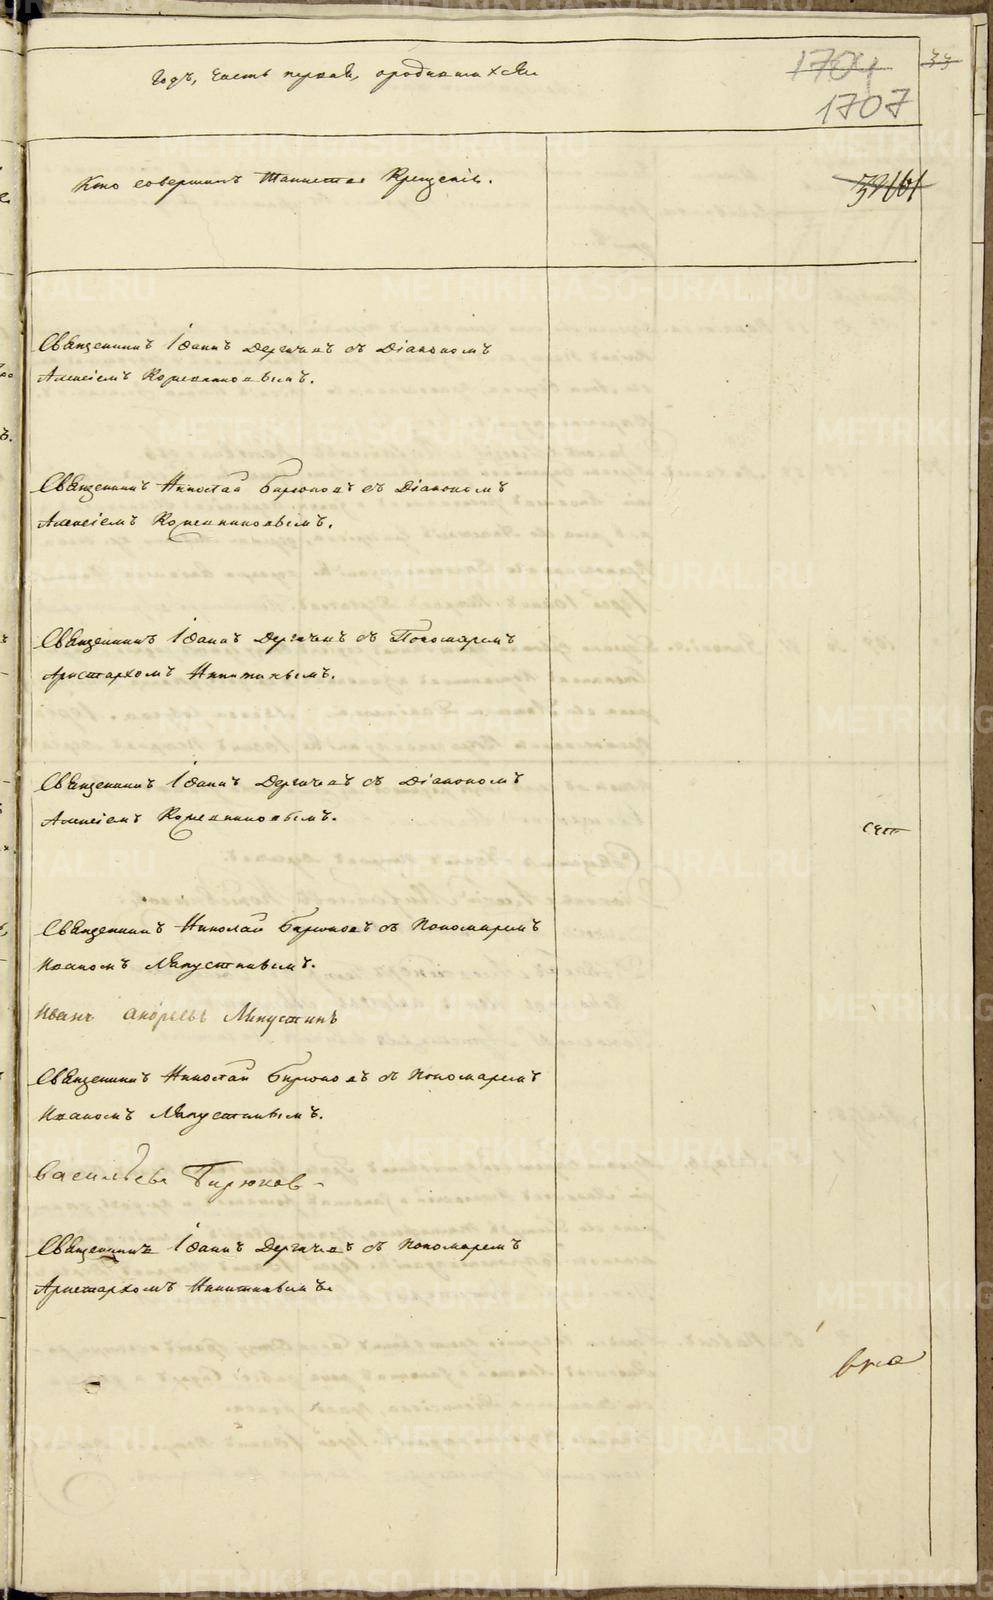 Годъ, Часть первая, о родившихся
1704
1707
33
Кто совершилъ Таинство Крещенія.
Священникъ Іоаннъ Дергачевъ съ Діакономъ
Алексіемъ Кожевниковымъ.
Священникъ Николай Бирюковъ съ Діакономъ
Алексіемъ Кожевниковымъ.
Священникъ Іоаннъ Дергачевъ съ Пономаремъ
Аристархомъ Никитинымъ.
Священникъ Іоаннъ Дергачевъ съ Діакономъ
Алексіемъ Кожевниковымъ.
Священникъ Николай Бирюковъ съ Пономаремъ
Иваномъ Мапустинымъ.
Иванъ Андреевъ Мапустинъ
Священникъ Николай Бирюковъ съ Пономаремъ
Иваномъ Мапустинымъ.
Васильевъ Бирюков
Священникъ Іоаннъ Дергачевъ съ Пономаремъ
Аристархомъ Никитинымъ